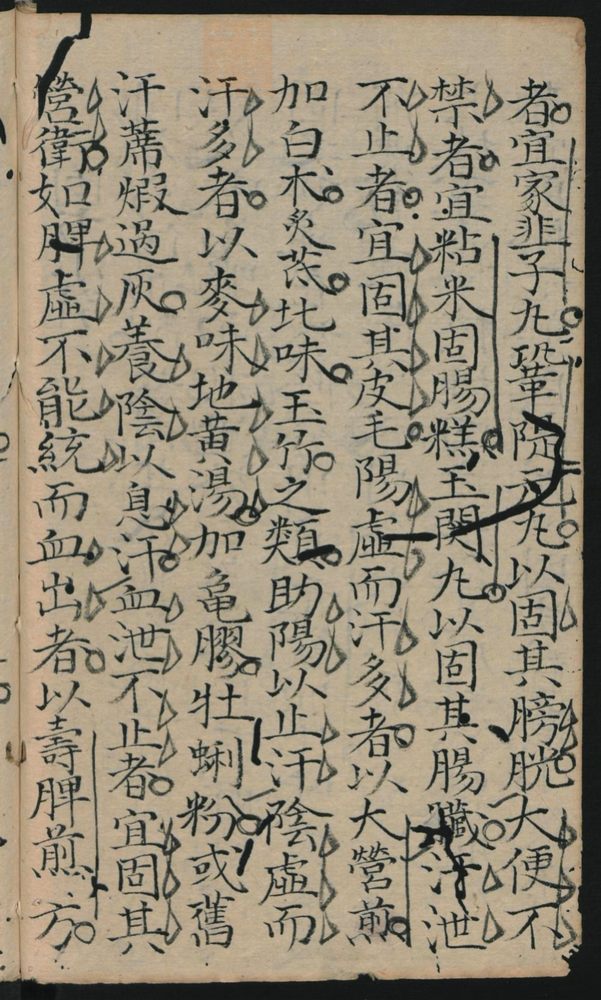 者宜家韭子丸鞏隄丸以固其膀胱大便不
禁者宜粘米固腸糕玉関丸以固其腸臟汗泄
不止者宜固其皮毛陽虛而汗多者以大營煎
加白朮炙芪北味玉竹之類助陽以止汗陰虛而
汗多者以麥味地黃湯加龟膠牡蜊粉或舊
汗蓆煅過灰養陰以息汗血泄不止者宜固其
營衛如脾虛不能統而血出者以壽脾煎方